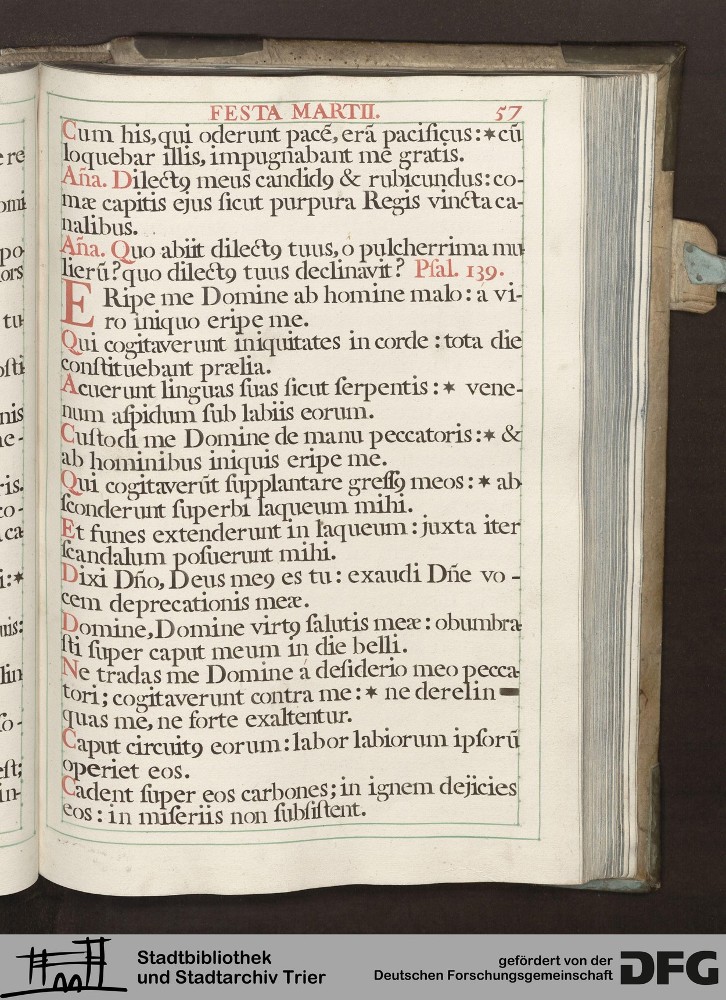 FESTA MARTII. 57
Cum his, qui oderunt pacē, erā pacificus: * cū
loquebar illis, impugnabant me gratis.
Aña. Dilectꝯ meus candidꝯ & rubicundus: co-
mæ capitis ejus ſicut purpura Regis vincta ca-
nalibus.
Aña. Quo abiit dilectꝯ tuus, o pulcherrima mu
lierū? quo dilectꝯ tuus declinavit? Pſal. 139.
ERipe me Domine ab homine malo: a vi-
ro iniquo eripe me.
Qui cogitaverunt iniquitates in corde: tota die
conſtituebant prælia.
Acuerunt linguas ſuas ſicut ſerpentis: * vene-
num aſpidum ſub labiis eorum.
Cuſtodi me Domine de manu peccatoris: * &
ab hominibus iniquis eripe me.
Qui cogitaverūt ſupplantare greſſꝯ meos: * ab
ſconderunt ſuperbi laqueum mihi.
Et funes extenderunt in laqueum: juxta iter
ſcandalum poſuerunt mihi.
Dixi Dño, Deus meꝯ es tu: exaudi Dñe vo-
cem deprecationis meæ.
Domine, Domine virtꝯ ſalutis meæ: obumbra
ſti ſuper caput meum in die belli.
Ne tradas me Domine á deſiderio meo pecca
tori; cogitaverunt contra me: * ne derelin
quas me, ne forte exaltentur.
Caput circuitꝯ eorum: labor labiorum ipſorū
operiet eos.
Cadent ſuper eos carbones; in ignem dejicies
eos: in miſeriis non ſubſiſtent.
Stadtbibliothek
und Stadtarchiv Trier
gefördert von der
Deutschen Forschungsgemeinschaft
DFG